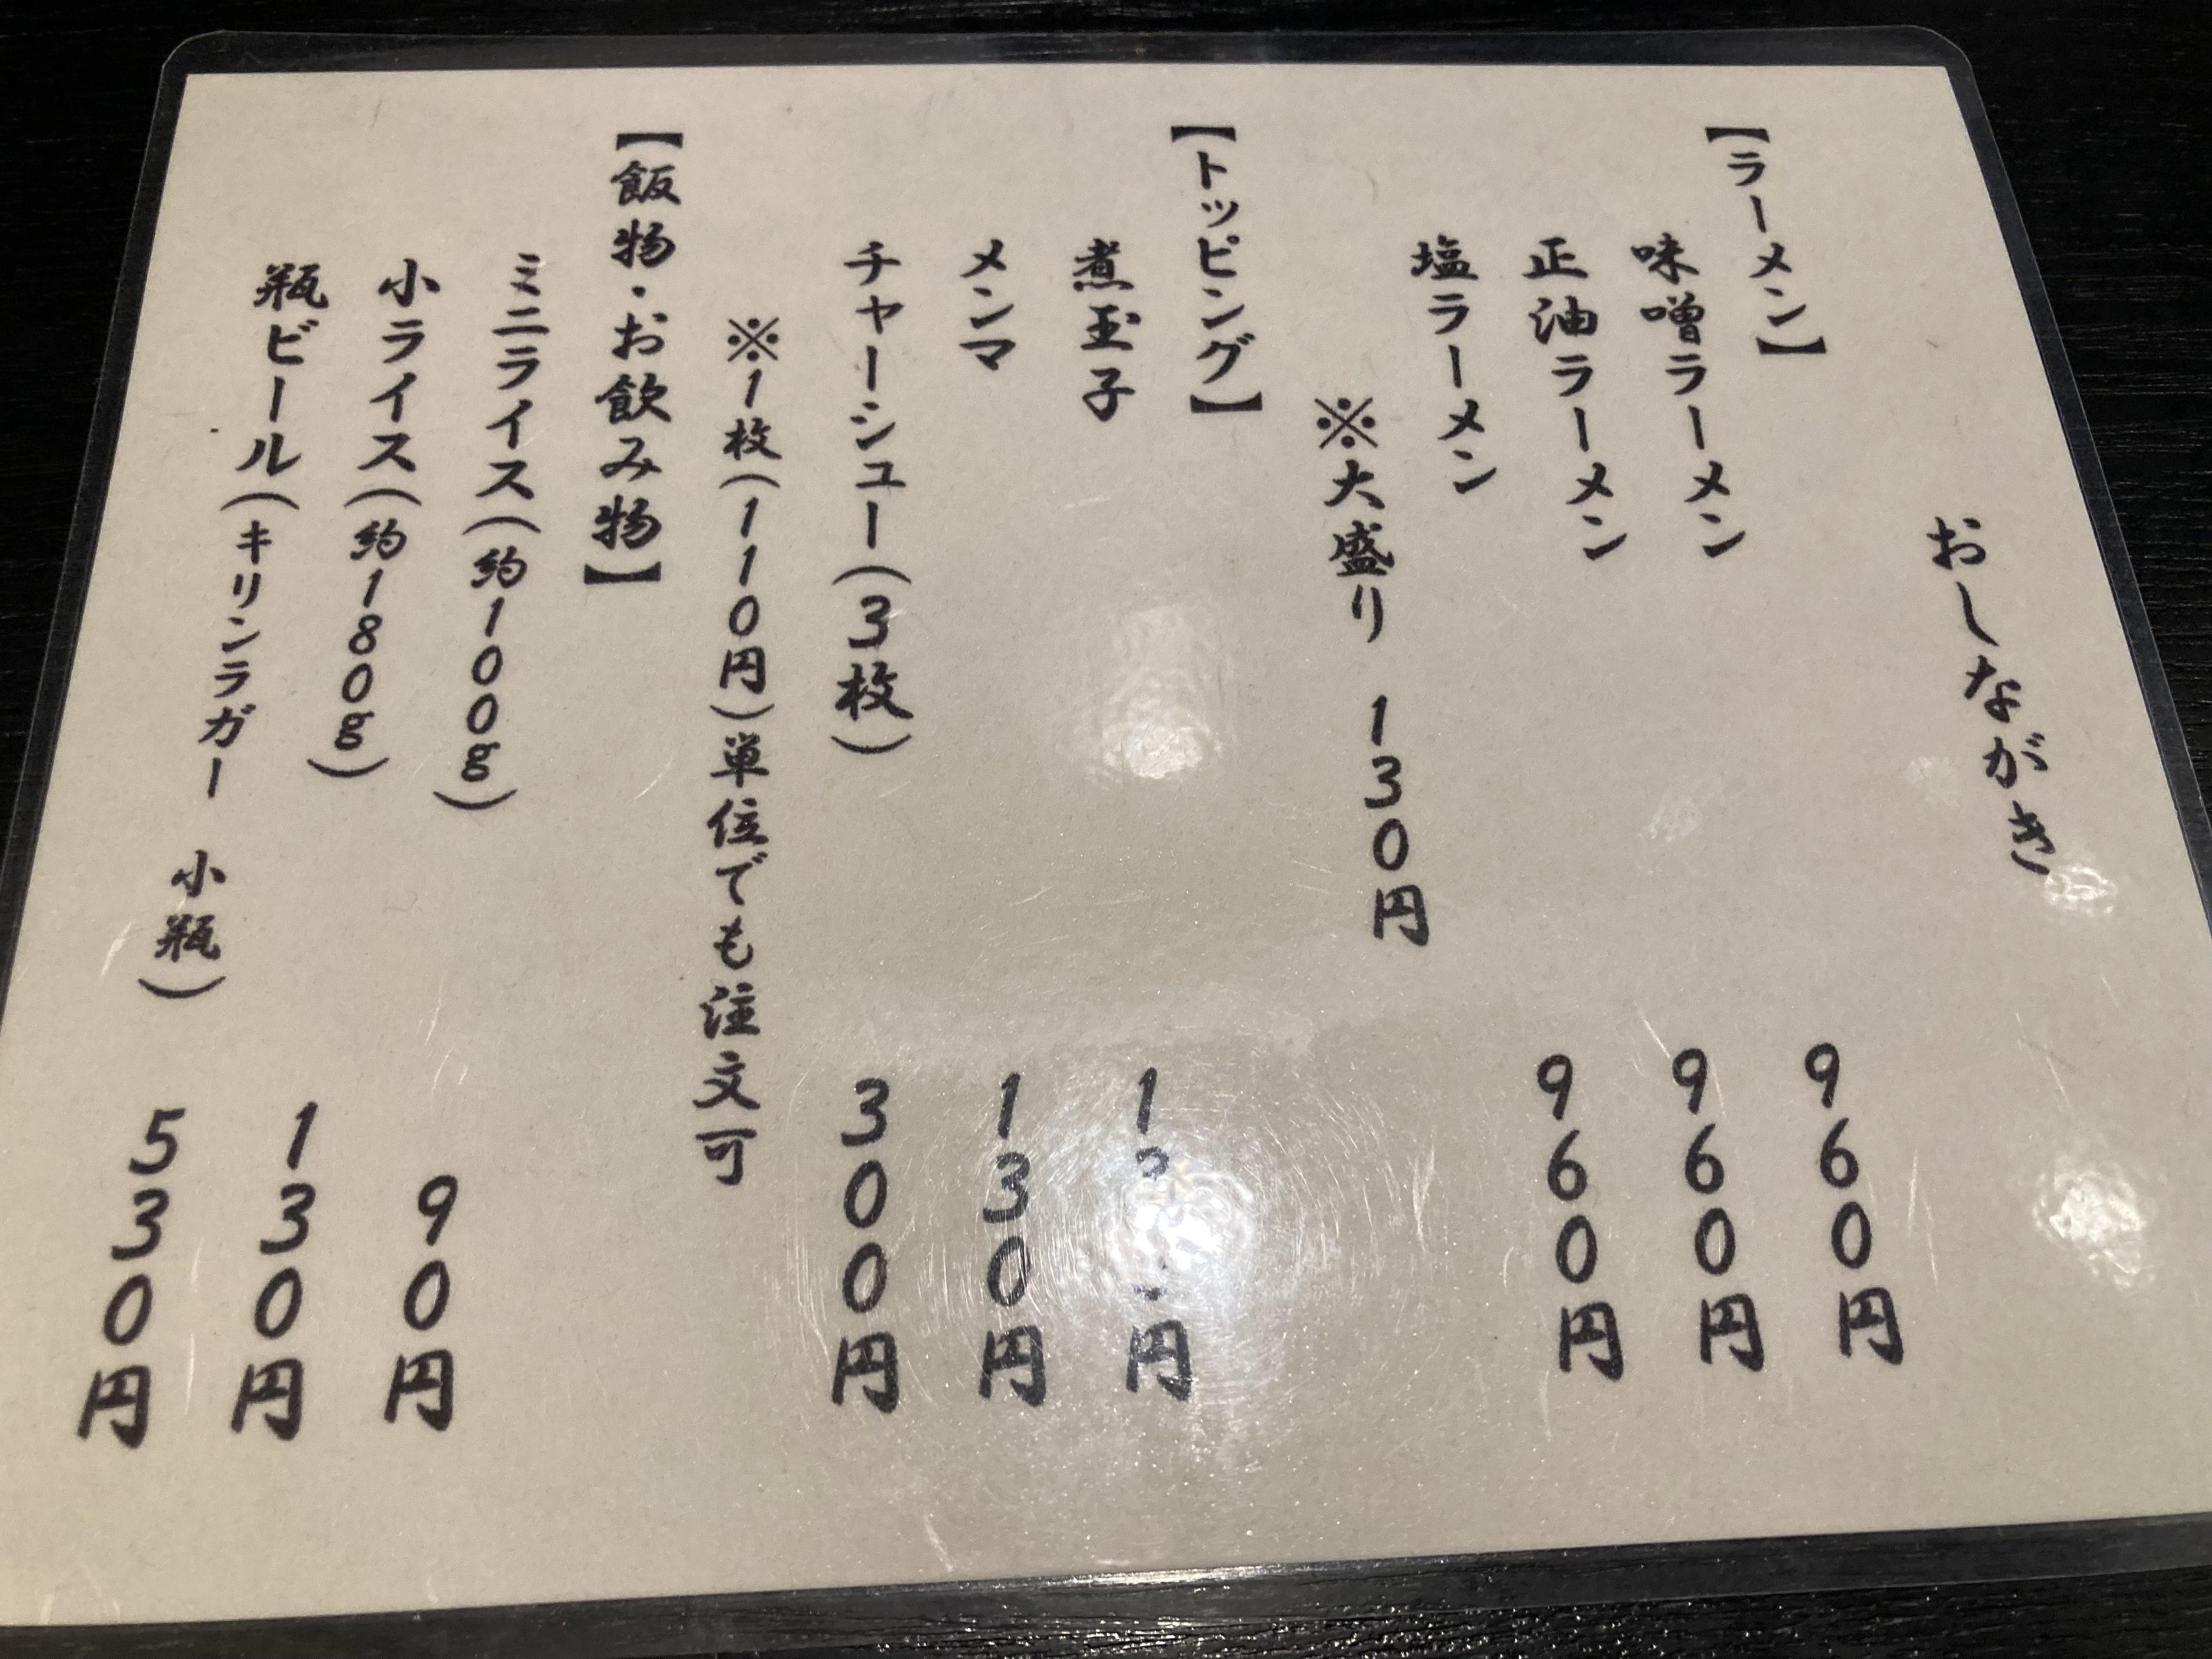 おしながき
【ラーメン】
味噌ラーメン 960円
正油ラーメン 960円
塩ラーメン 960円
※大盛り 130円
【トッピング】
煮玉子 円
メンマ 130円
チャーシュー(3枚) 300円
※1枚(110円)単位でも注文可
【飯物・お飲み物】
ミニライス(約100g) 90円
小ライス(約180g) 130円
瓶ビール(キリンラガー 小瓶) 530円